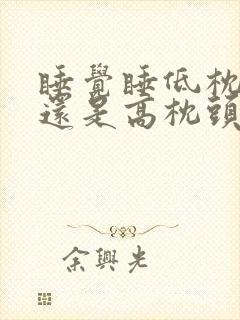 睡覺睡低枕
還是高枕頭
余興光